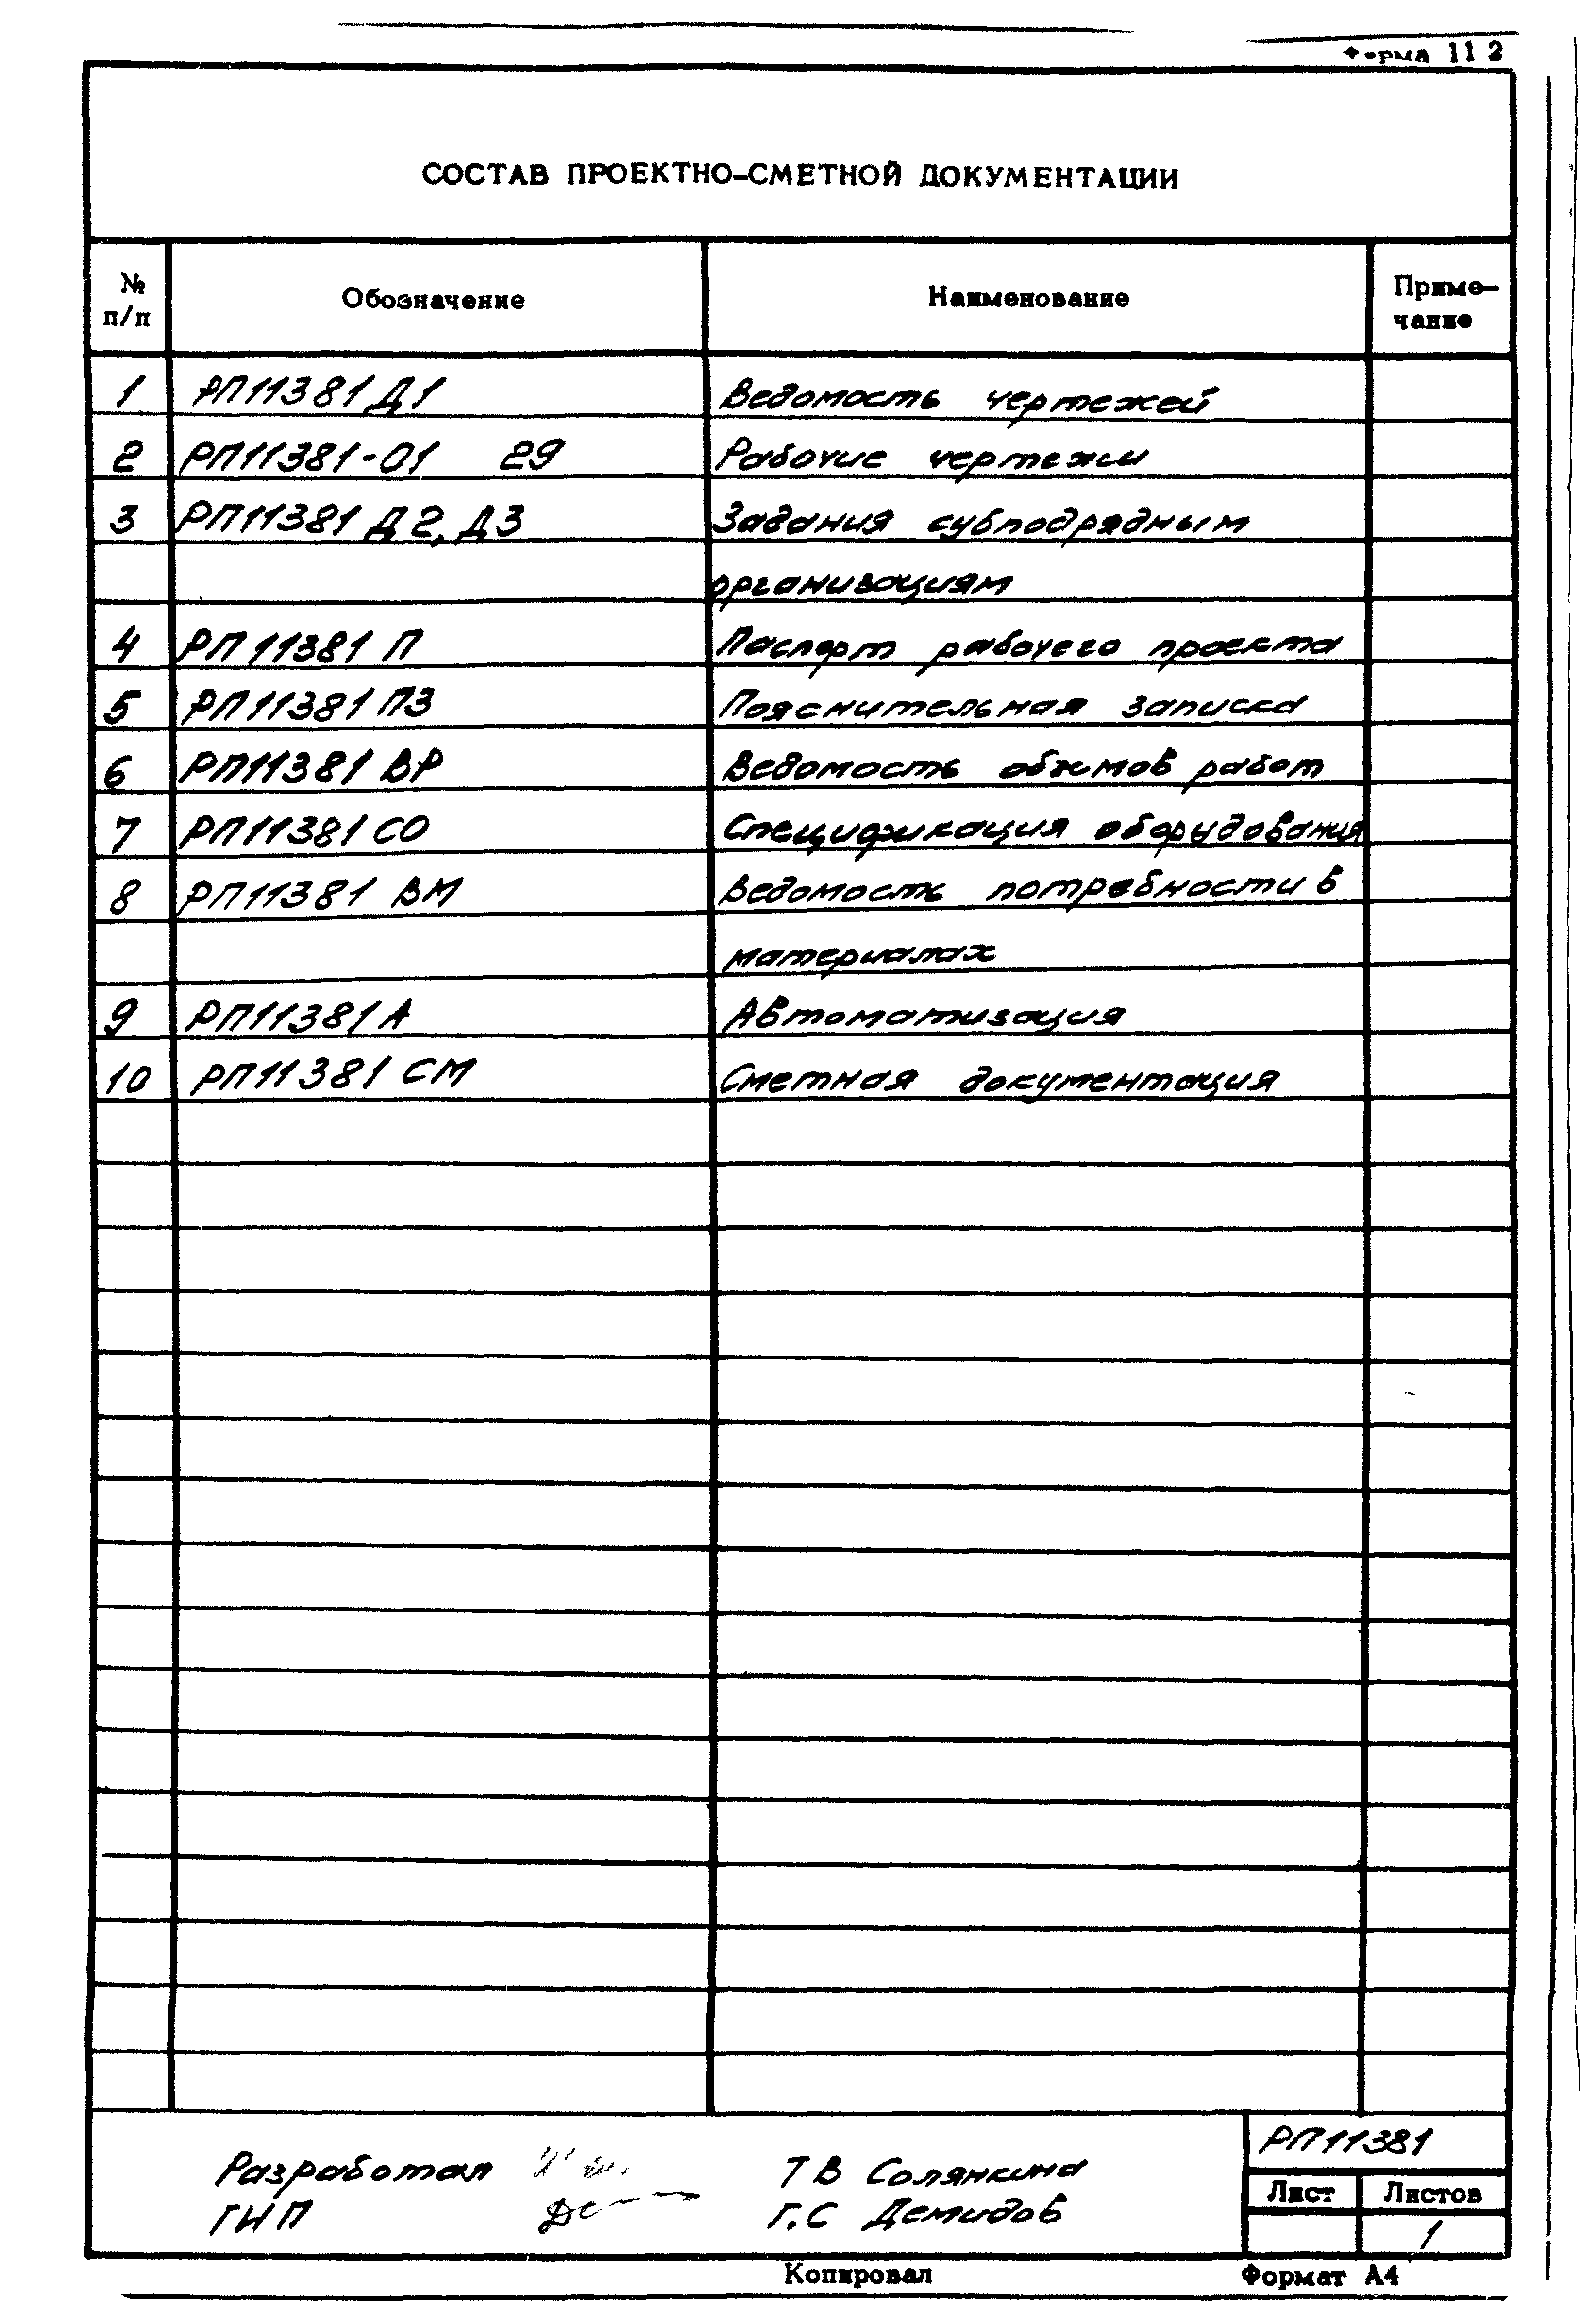 Форма 11 2
СОСТАВ ПРОЕКТНО-СМЕТНОЙ ДОКУМЕНТАЦИИ
№ п/п Обозначение Наименование Приме-чание
1 РП11381 Д1 Ведомость чертежей
2 РП11381-01 29 Рабочие чертежи
3 РП11381 Д2, Д3 Задания субподрядным
организациям
4 РП11381 П Паспорт рабочего проекта
5 РП11381 ПЗ Пояснительная записка
6 РП11381 ВР Ведомость объемов работ
7 РП11381 СО Спецификация оборудования
8 РП11381 ВМ Ведомость потребности в
материалах
9 РП11381 А Автоматизация
10 РП11381 СМ Сметная документация
РП11381
Разработал Т В Солянкина
Лист Листов
ГИП Г.С Демидов
1
Копировал Формат А4